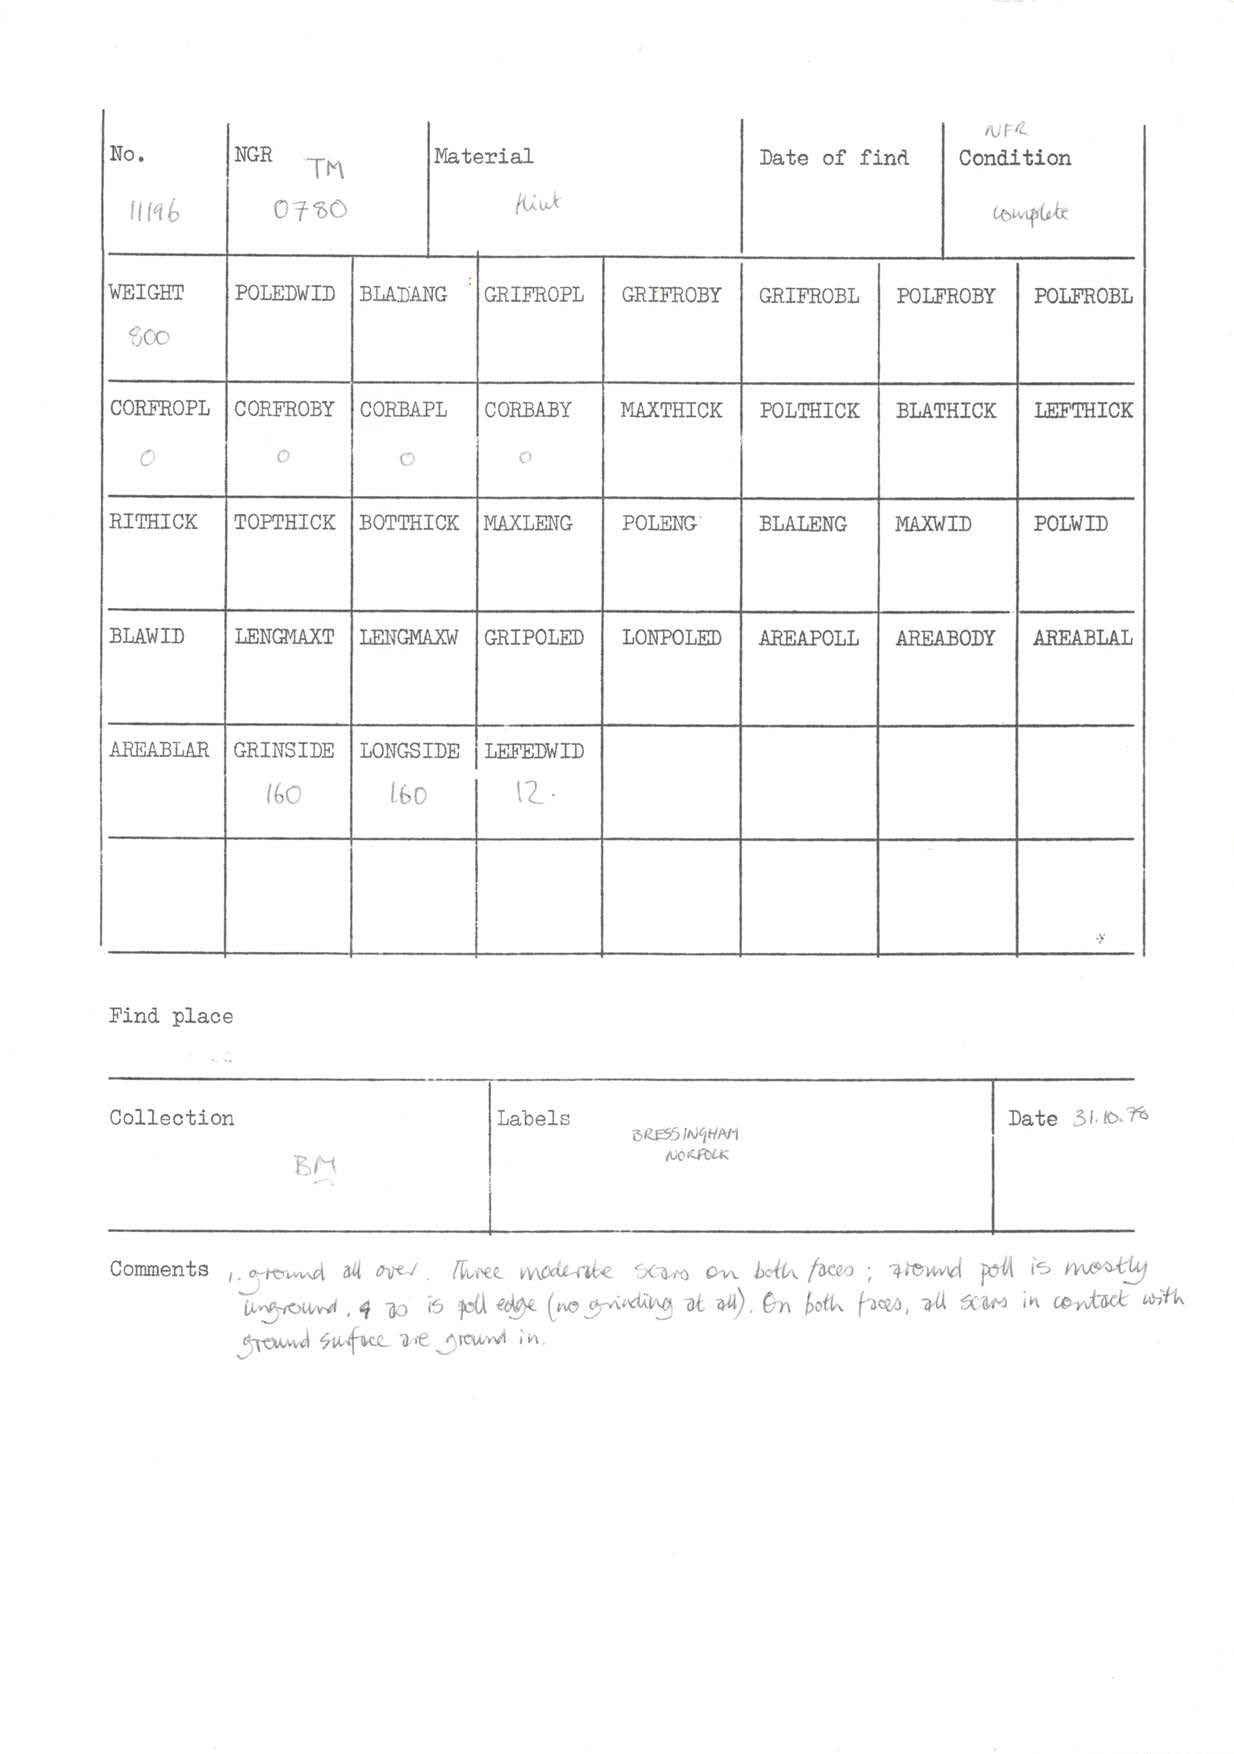 NFR
No. NGR TM Material Date of find Condition
11196 0780 flint complete
WEIGHT POLEDWID BLADANG GRIFROPL GRIFROBY GRIFROBL POLFROBY POLFROBL
800
CORFROPL CORFROBY CORBAPL CORBABY MAXTHICK POLTHICK BLATHICK LEFTHICK
0 0 0 0
RITHICK TOPTHICK BOTTHICK MAXLENG POLENG BLALENG MAXWID POLWID
BLAWID LENGMAXT LENGMAXW GRIPOLED LONPOLED AREAPOLL AREABODY AREABLAL
AREABLAR GRINSIDE LONGSIDE LEFEDWID
160 160 12.
Find place
Collection Labels Date 31.10.78
BRESSINGHAM
NORFOLK
BM
Comments 1. ground all over. Three moderate scars on both faces; around poll is mostly
unground, & so is poll edge (no grinding at all). On both faces, all scars in contact with
ground surface are ground in.